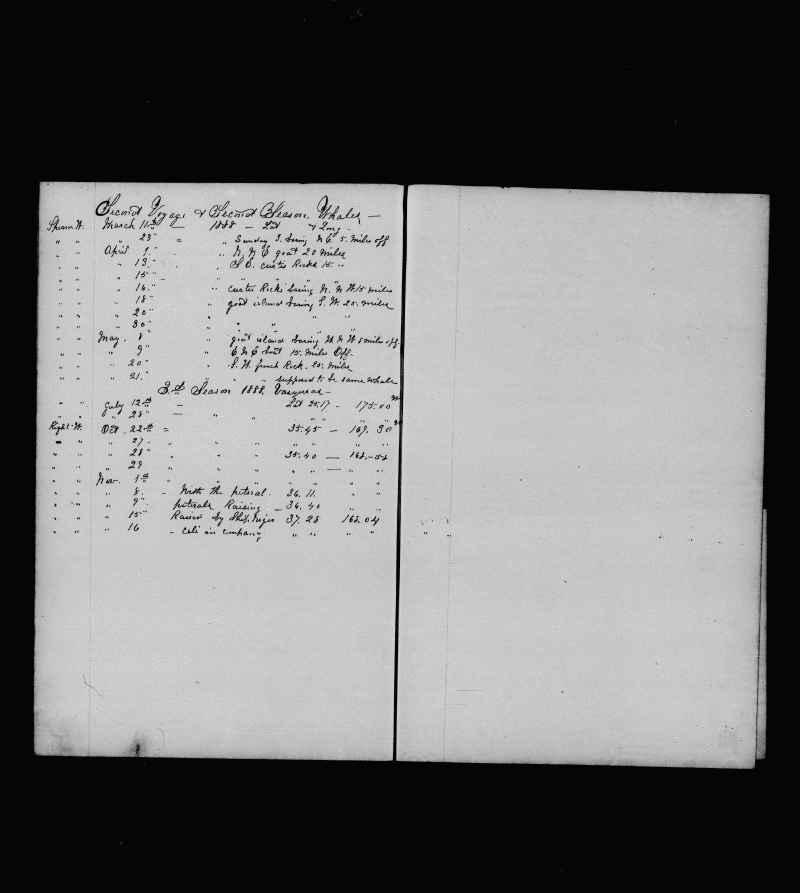 Second Voyage & Second Season, Whales —
Sperm W. March 11th — 1888 — Lat & Long —
" " " 23" = " Sunday I. baring N E 5. Miles off
" " April 1. " " " N. N E goat 20 Miles
" " " 13. " " S E. curtis Rocks 15 "
" " " 15 " — " " " "
" " " 16. " " curtes Rocks baring N. N W 15 miles
" " " 18 " " goat island baring S. W. 25. miles
" " " 20 " " " " "
" " " 30 " " " " "
" " May. 8 " goat island baring N N W 8 miles off.
" " " 9 " " E N E 15. Miles Off.
" " " 20 " " S. W. french Rock. 25. Miles
" " " 21. " " " supposed to be same Whale
3.d Season 1888.
" " July 12th — Lat 35.17 — 175.00 W
" " " 28" — " " " " "
Right W. Oct. 22th = 35.45 — 169. 30 W
" " " 27 - " " " " " "
" " " 28 " " " " 35.40 — 168.-54
" " " 29 " " " " " — " "
" " Nov. 1th " " " " " " "
" " " 8. - With the 36. 11. " "
" " " 9 " Raising — 36. 40
" " " 15" Raised by Ship Niger 37. 28 168.04
" " " 16 - in company " " " "
" "